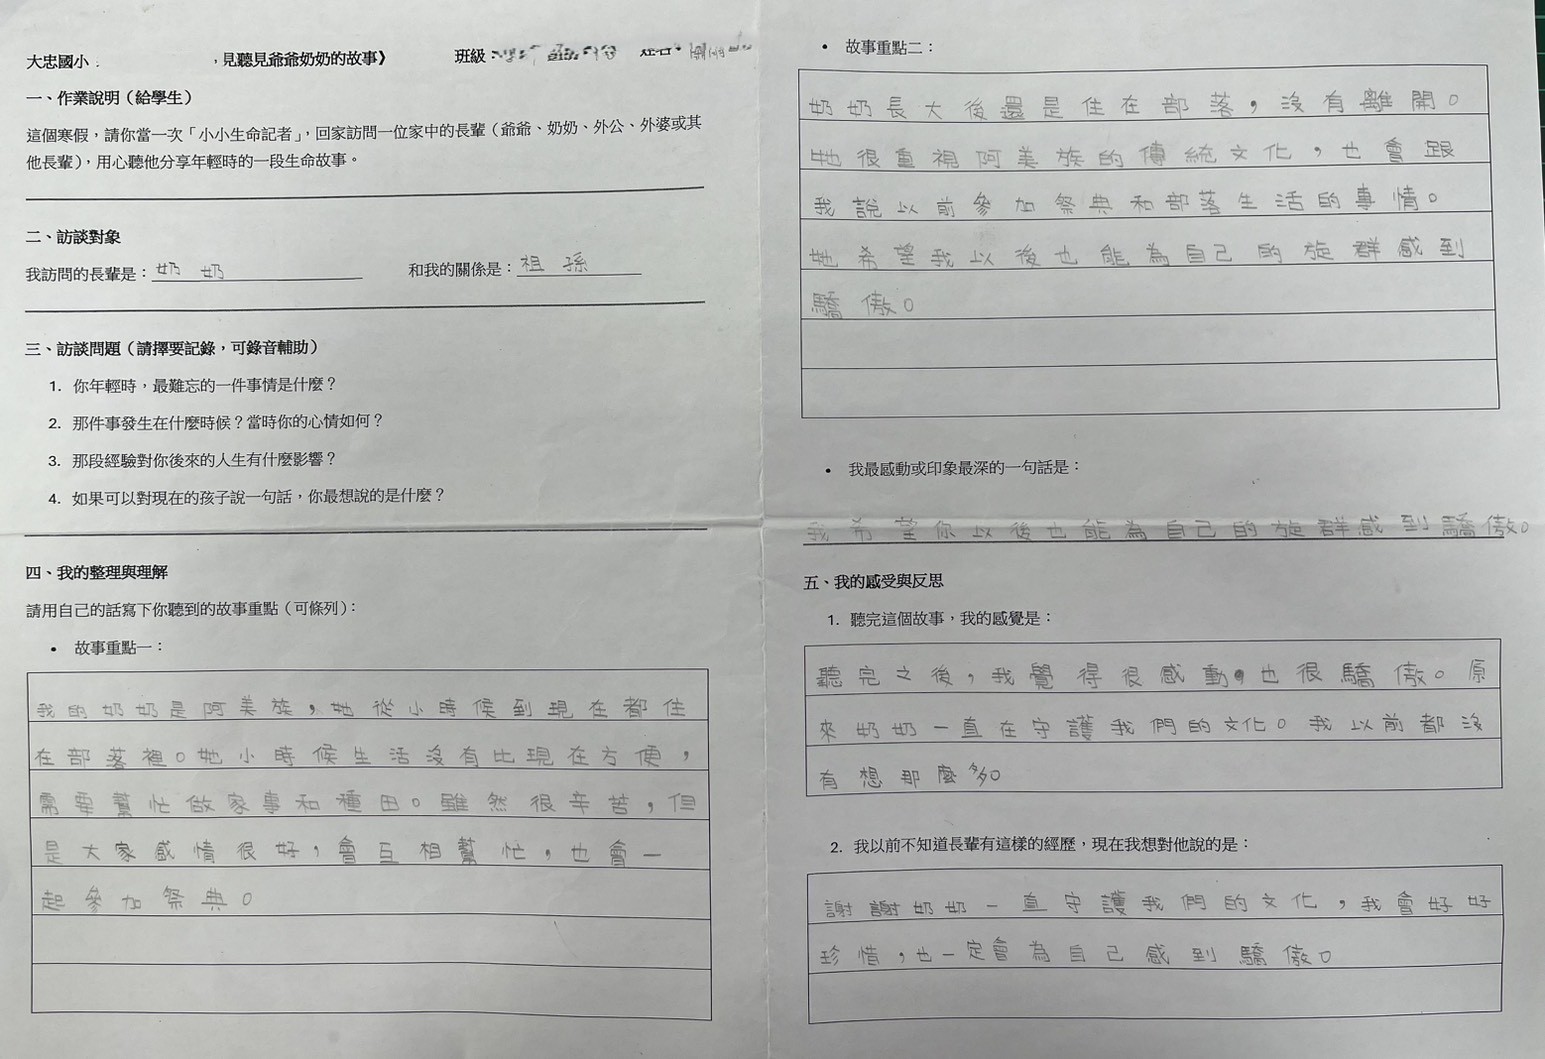 大忠國小
，見聽見爺爺奶奶的故事》
班級：
姓名：
一、作業說明（給學生）
這個寒假，請你當一次「小小生命記者」，回家訪問一位家中的長輩（爺爺、奶奶、外公、外婆或其
他長輩），用心聽他分享年輕時的一段生命故事。
二、訪談對象
我訪問的長輩是：奶奶 和我的關係是：祖孫
三、訪談問題（請擇要記錄，可錄音輔助）
1. 你年輕時，最難忘的一件事情是什麼？
2. 那件事發生在什麼時候？當時你的心情如何？
3. 那段經驗對你後來的人生有什麼影響？
4. 如果可以對現在的孩子說一句話，你最想說的是什麼？
四、我的整理與理解
請用自己的話寫下你聽到的故事重點（可條列）：
• 故事重點一：
我的奶奶是阿美族，她從小時候到現在都住
在部落裡。她小時候生活沒有比現在方便，
需要幫忙做家事和種田。雖然很辛苦，但
是大家感情很好，會互相幫忙，也會一
起參加祭典。
• 故事重點二：
奶奶長大後還是住在部落，沒有離開。
她很重視阿美族的傳統文化，也會跟
我說以前參加祭典和部落生活的事情。
她希望我以後也能為自己的族群感到
驕傲。
• 我最感動或印象最深的一句話是：
我希望你以後也能為自己的族群感到驕傲。
五、我的感受與反思
1. 聽完這個故事，我的感覺是：
聽完之後，我覺得很感動，也很驕傲。原
來奶奶一直在守護我們的文化。我以前都沒
有想那麼多。
2. 我以前不知道長輩有這樣的經歷，現在我想對他說的是：
謝謝奶奶一直守護我們的文化，我會好好
珍惜，也一定會為自己感到驕傲。